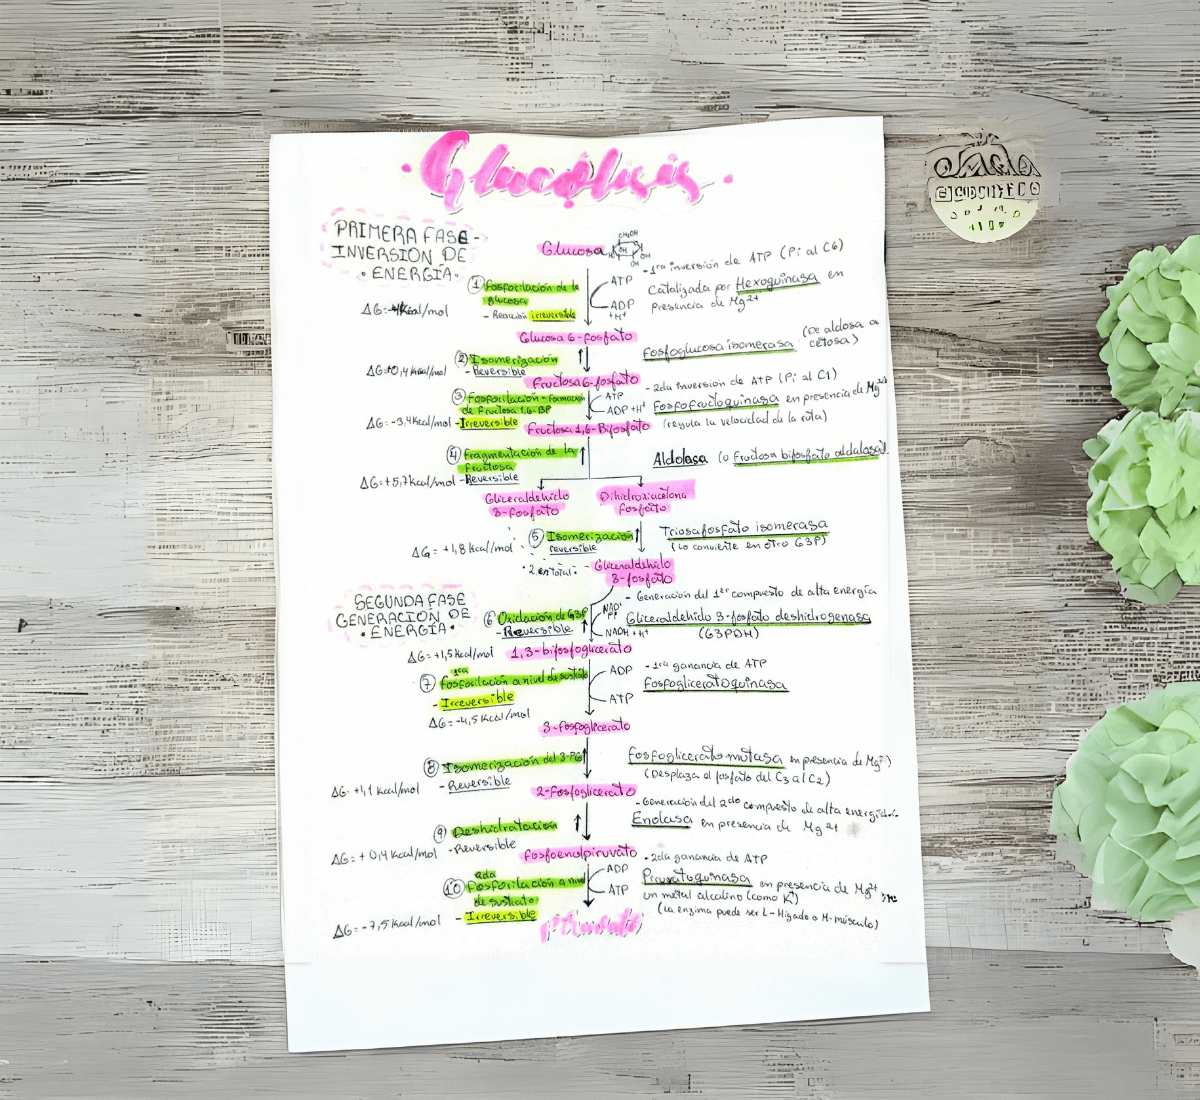 Glucólisis
PRIMERA FASE -
INVERSIÓN DE
• ENERGÍA •
Glucosa
CH₂OH
OH
OH
OH
① Fosforilación de la
glucosa
- Reacción irreversible
ΔG=-4Kcal/mol
ATP
ADP
+H⁺
- 1ra inversión de ATP (Pi al C6)
Catalizada por Hexoquinasa en
presencia de Mg²⁺
Glucosa 6-fosfato
② Isomerización
- Reversible
ΔG=+0,4 Kcal/mol
Fosfoglucosa isomerasa (De aldosa a
cetosa)
Fructosa 6-fosfato
③ Fosforilación - formación
de Fructosa 1,6-BP
- Irreversible
ΔG=-3,4Kcal/mol
ATP
ADP +H⁺
- 2da inversión de ATP (Pi al C1)
Fosfofructoquinasa en presencia de Mg²⁺
(regula la velocidad de la ruta)
Fructosa 1,6-Bifosfato
④ Fragmentación de la
fructosa
- Reversible
ΔG=+5,7Kcal/mol
Aldolasa (o Fructosa bifosfato aldolasa)
Gliceraldehído
3-fosfato
Dihidroxiacetona
fosfato
⑤ Isomerización
reversible
ΔG = +1,8 Kcal/mol
Triosafosfato isomerasa
(Lo convierte en otro G3P)
• 2 en total •
Gliceraldehído
3-fosfato
SEGUNDA FASE
GENERACIÓN DE
• ENERGÍA •
- Generación del 1er compuesto de alta energía
⑥ Oxidación de G3P
- Reversible
ΔG=+1,5 Kcal/mol
NAD⁺
Pi
NADH + H⁺
Gliceraldehído 3-fosfato deshidrogenasa
(G3PDH)
1,3-bifosfoglicerato
⑦ 1ra
fosforilación a nivel de sustrato
- Irreversible
ΔG=-4,5 Kcal/mol
ADP
ATP
- 1ra ganancia de ATP
Fosfogliceratoquinasa
3-fosfoglicerato
⑧ Isomerización del 3-PG
- Reversible
ΔG=+1,1 Kcal/mol
Fosfoglicerato mutasa en presencia de Mg²⁺
(Desplaza al fosfato del C3 al C2)
2-fosfoglicerato
- Generación del 2do compuesto de alta energía
Enolasa en presencia de Mg 2+
⑨ Deshidratación
- Reversible
ΔG=+0,4 Kcal/mol
Fosfoenolpiruvato
⑩ 2da
Fosforilación a nivel
de sustrato
- Irreversible
ΔG=-7,5 Kcal/mol
ADP
ATP
- 2da ganancia de ATP
Piruvatoquinasa en presencia de Mg²⁺
un metal alcalino (como K⁺)
(La enzima puede ser L-Hígado o M-músculo)
Piruvato